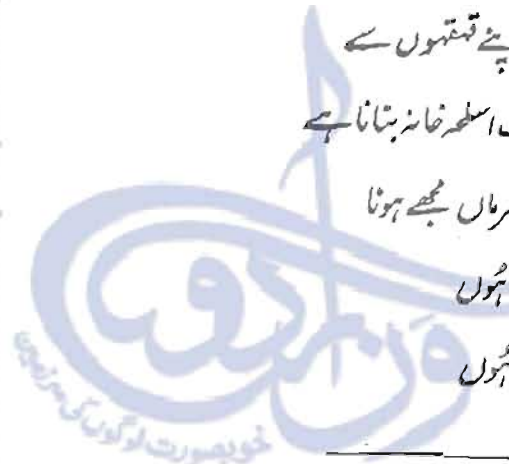 پنے قہقہوں سے
اسلحہ خانہ بنانا ہے
رماں مجھے ہونا
ہُوں
ہُوں
ون اردو
خوبصورت لوگوں کی سرزمین